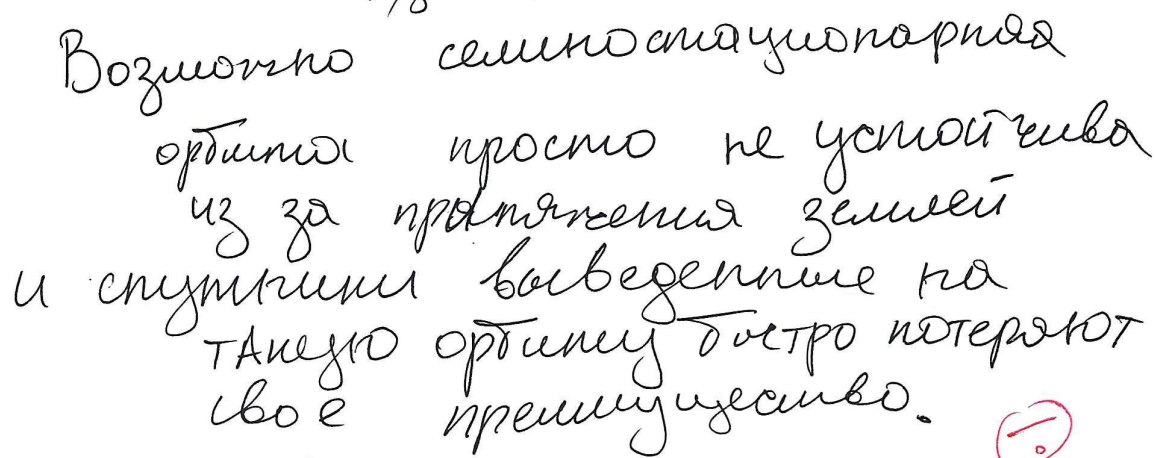 Возможно селеностационарная
орбита просто не устойчива
из за притяжения землёй
и спутники выведенные на
такую орбиту быстро потеряют
свое преимущество.